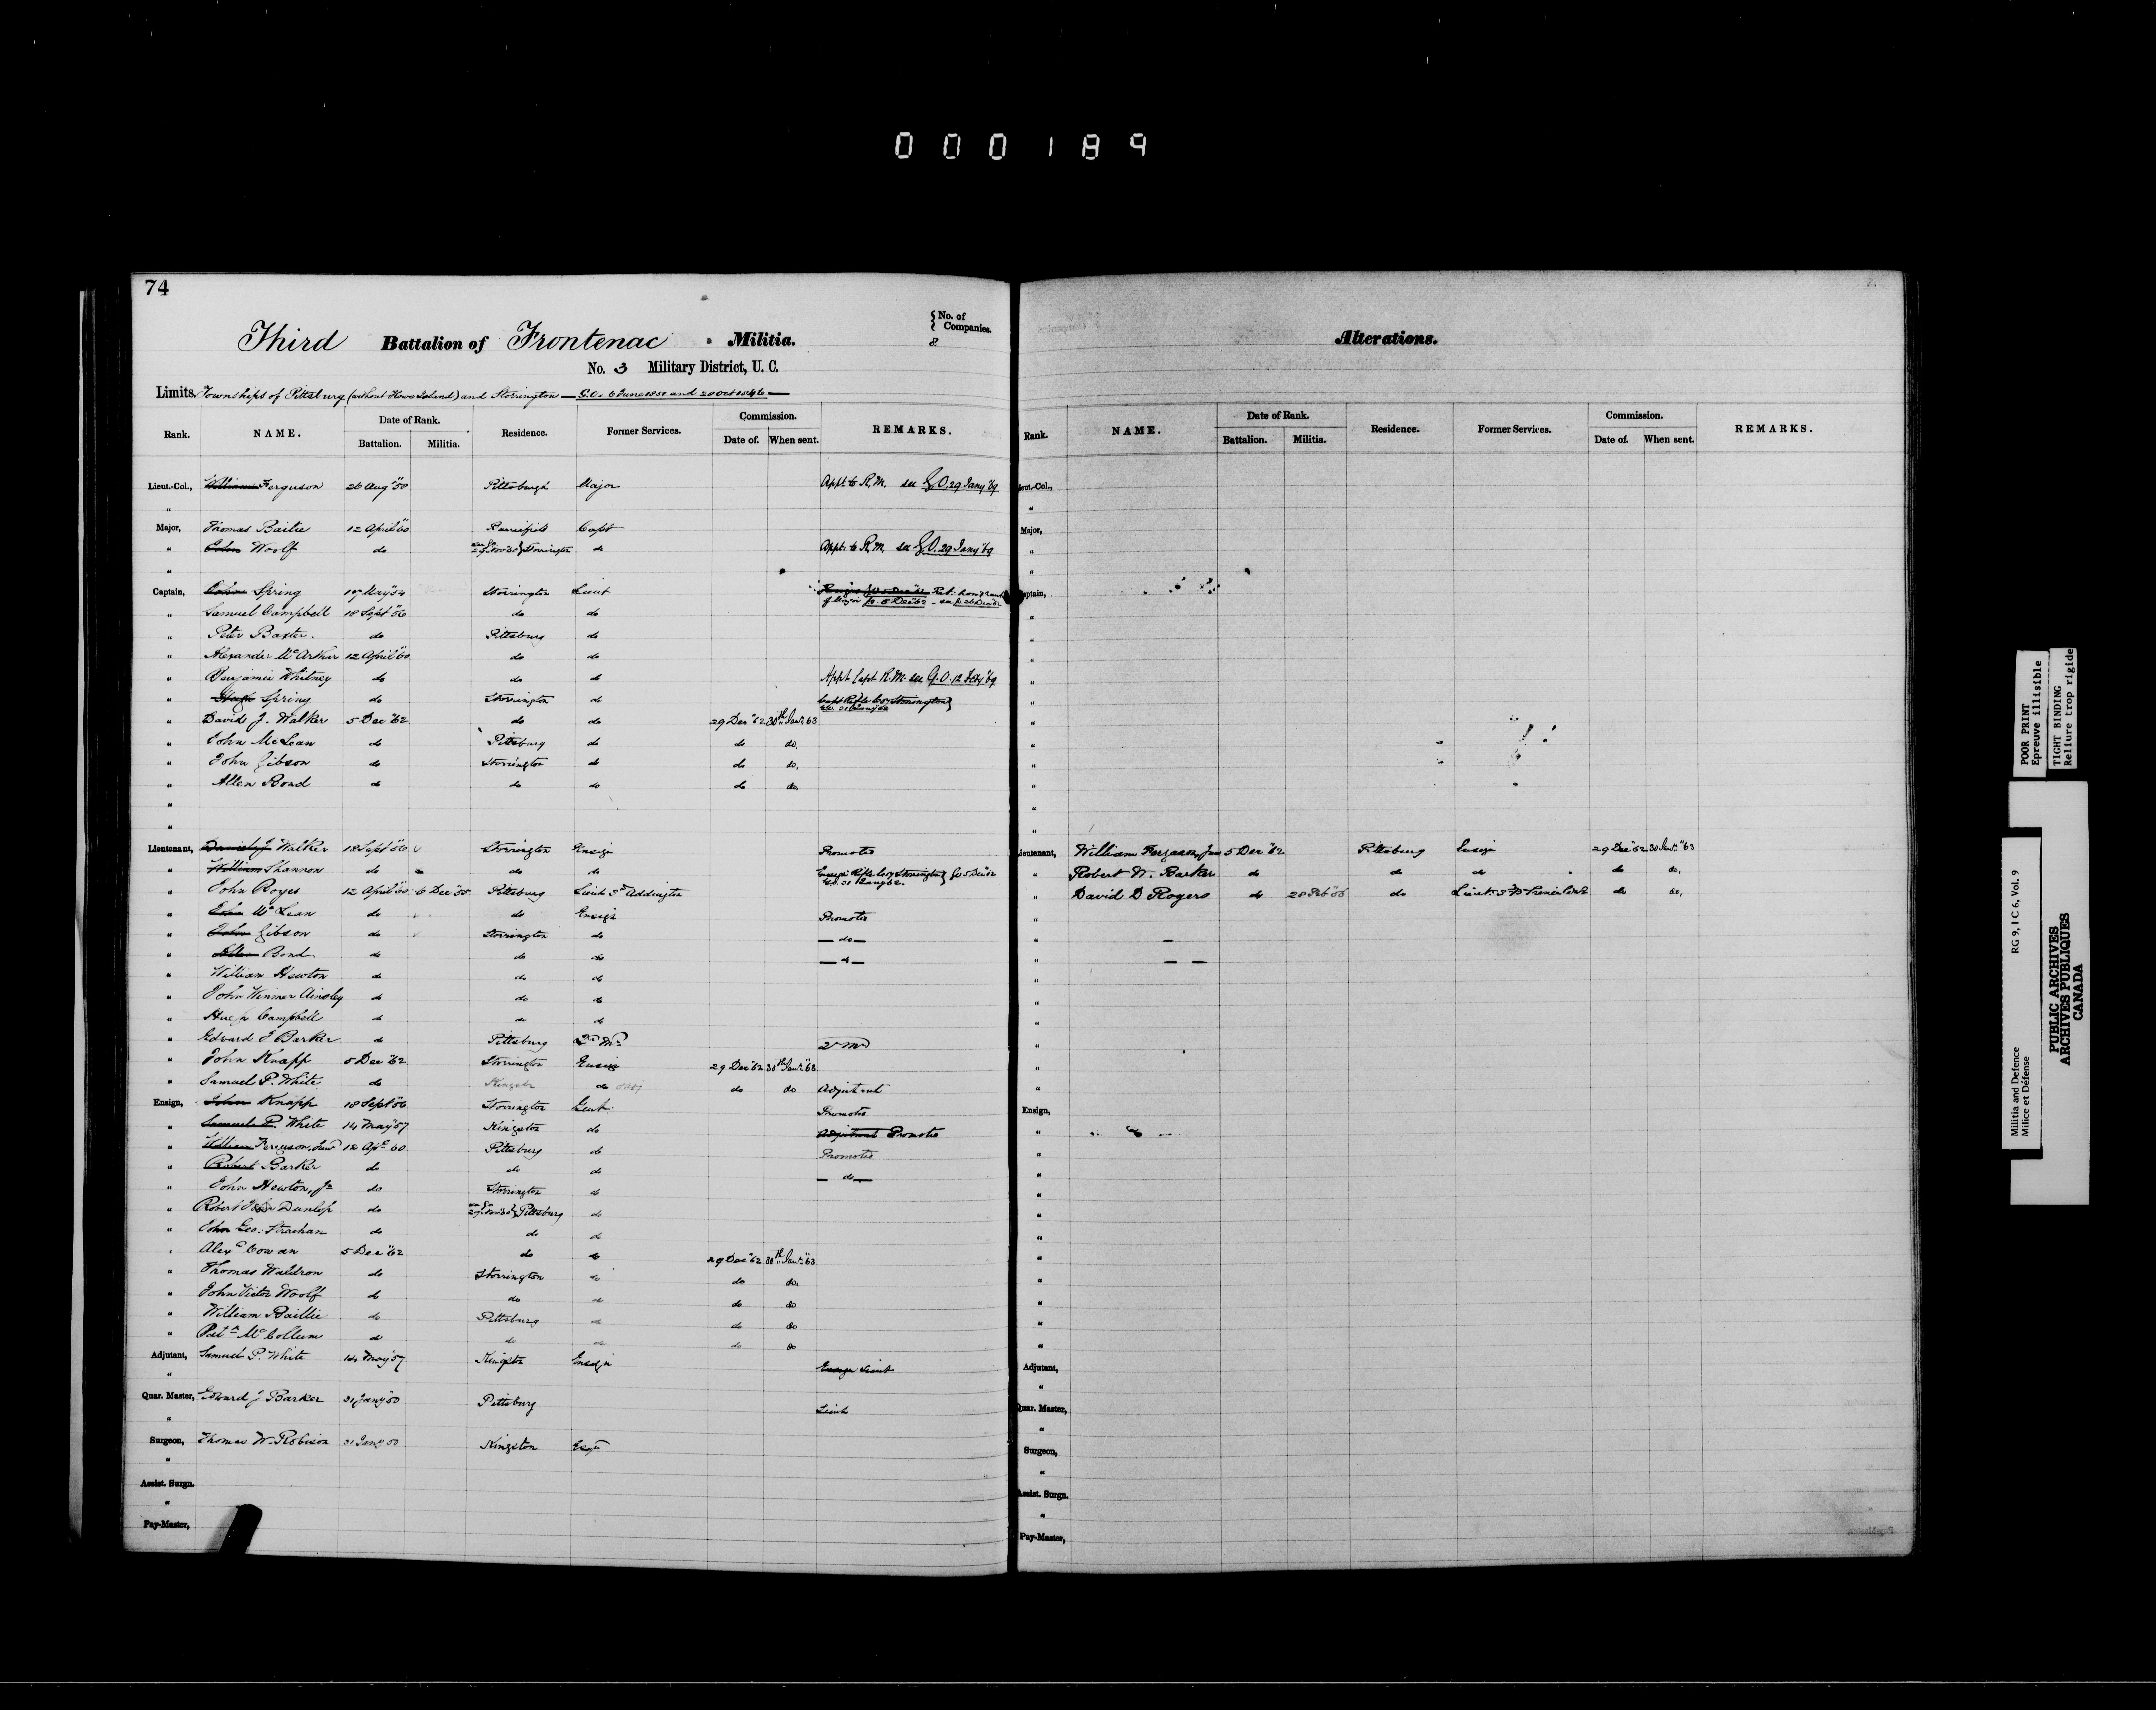 000189
74
Third Battalion of Frontenac Militia.
{ No. of Companies. 8.
No. 3 Military District, U. C.
Limits. Townships of Pittsburg (without Howe Island) and Storrington — G.O. 6 June 1851 and 20 Oct 1846 —
Rank. NAME. Date of Rank. Battalion. Militia. Residence. Former Services. Commission. Date of. When sent. REMARKS.
Lieut.-Col., William Ferguson 26 Aug '50 Pittsburgh Major Appt. to R.M. see G.O. 29 Jany '69
"
Major, Thomas Bailie 12 April '60 Barriefield Capt
" John Woolf do Storrington do Appt. to R.M. see G.O. 29 Jany '69
"
Captain, Spring May Storrington Lieut
" Samuel Campbell 18 Sept '56 do do
" Peter Baxter. do Pittsburg do
" Alexander McArthur 12 April '60 do do
" Benjamin Whitney do do do Appt Capt R.M. see G.O. 12 Feby '69
" Hugh Spring do Storrington do
" David J. Walker 5 Dec '62 do do 29 Dec '62 30th Jany '63
" John McLean do Pittsburg do do do.
" John Gibson do Storrington do do do.
" Allen Bond do do do do do.
"
"
Lieutenant, David J Walker 18 Sept '56 Storrington Ensign Promoted
" William Shannon do do do
" John Boyes 12 April '60 6 Dec '55 Pittsburg Lieut 3d Addington
" John McLean do do Ensign Promoted
" John Gibson do Storrington do — do —
" Allen Bond do do do — do —
" William Newton do do do
" John Winmer Ainsley do do do
" Hugh Campbell do do do
" Edward J Barker do Pittsburg Qr Mr Qr Mr
" John Knapp 5 Dec '62 Storrington Ensign 29 Dec '62 30th Jany '63
" Samuel P. White do Kingston do do do Adjutant
Ensign, John Knapp 18 Sept '56 Storrington Gent. Promoted
" Samuel P. White 14 May '57 Kingston do Adjutant Promoted
" William Ferguson, Junr 12 Apl '60 Pittsburg do Promoted
" Robert Barker do do do — do —
" John Newton, Jr do Storrington do
" Robert Dunlop do Pittsburg do
" John Geo: Strachan do do do
" Alexr Cowan 5 Dec '62 do do 29 Dec '62 30th Jany '63
" Thomas Waldron do Storrington do do do.
" John Victor Woolf do do do do do
" William Baillie do Pittsburg do do do
" Patk McCollum do do do do do
Adjutant, Samuel P. White 14 May '57 Kingston Ensign Ensign Lieut
"
Quar. Master, Edward J Barker 31 Jany '50 Pittsburg Lieut
"
Surgeon, Thomas W. Robison 31 Jany '50 Kingston Esqr
"
Assist. Surgn.
"
Pay-Master,
Alterations.
Rank. NAME. Date of Rank. Battalion. Militia. Residence. Former Services. Commission. Date of. When sent. REMARKS.
ieut.-Col.,
"
Major,
"
"
aptain,
"
"
"
"
"
"
"
"
"
"
"
ieutenant, William Ferguson, Junr 5 Dec '62 Pittsburg Ensign 29 Dec '62 30 Jany '63
" Robert W. Barker do do do do do.
" David D Rogers do 28 Feb '56 do Lieut do do.
"
"
"
"
"
"
"
"
Ensign,
"
"
"
"
"
"
"
"
"
"
"
Adjutant,
"
Quar. Master,
"
Surgeon,
"
Assist. Surgn.
"
Pay-Master,
POOR PRINT
Epreuve illisible
TIGHT BINDING
Reliure trop rigide
Militia and Defence RG 9, I C 6, Vol. 9
Milice et Défense
PUBLIC ARCHIVES
ARCHIVES PUBLIQUES
CANADA